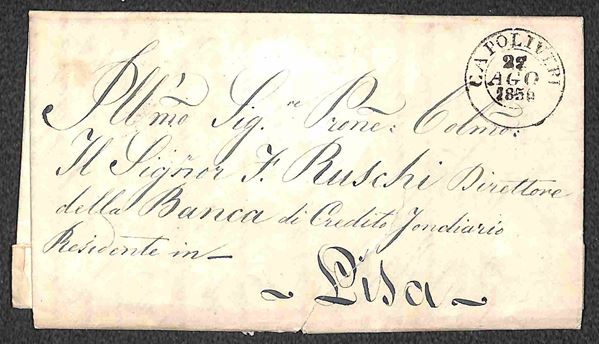 CAPOLIVERI
27
AGO
1859
Ill.mo Sig.re Prone: Colmo:
Il Signor F. Ruschi Direttore
della Banca di Credito Fondiario
Residente in —
~ Pisa ~